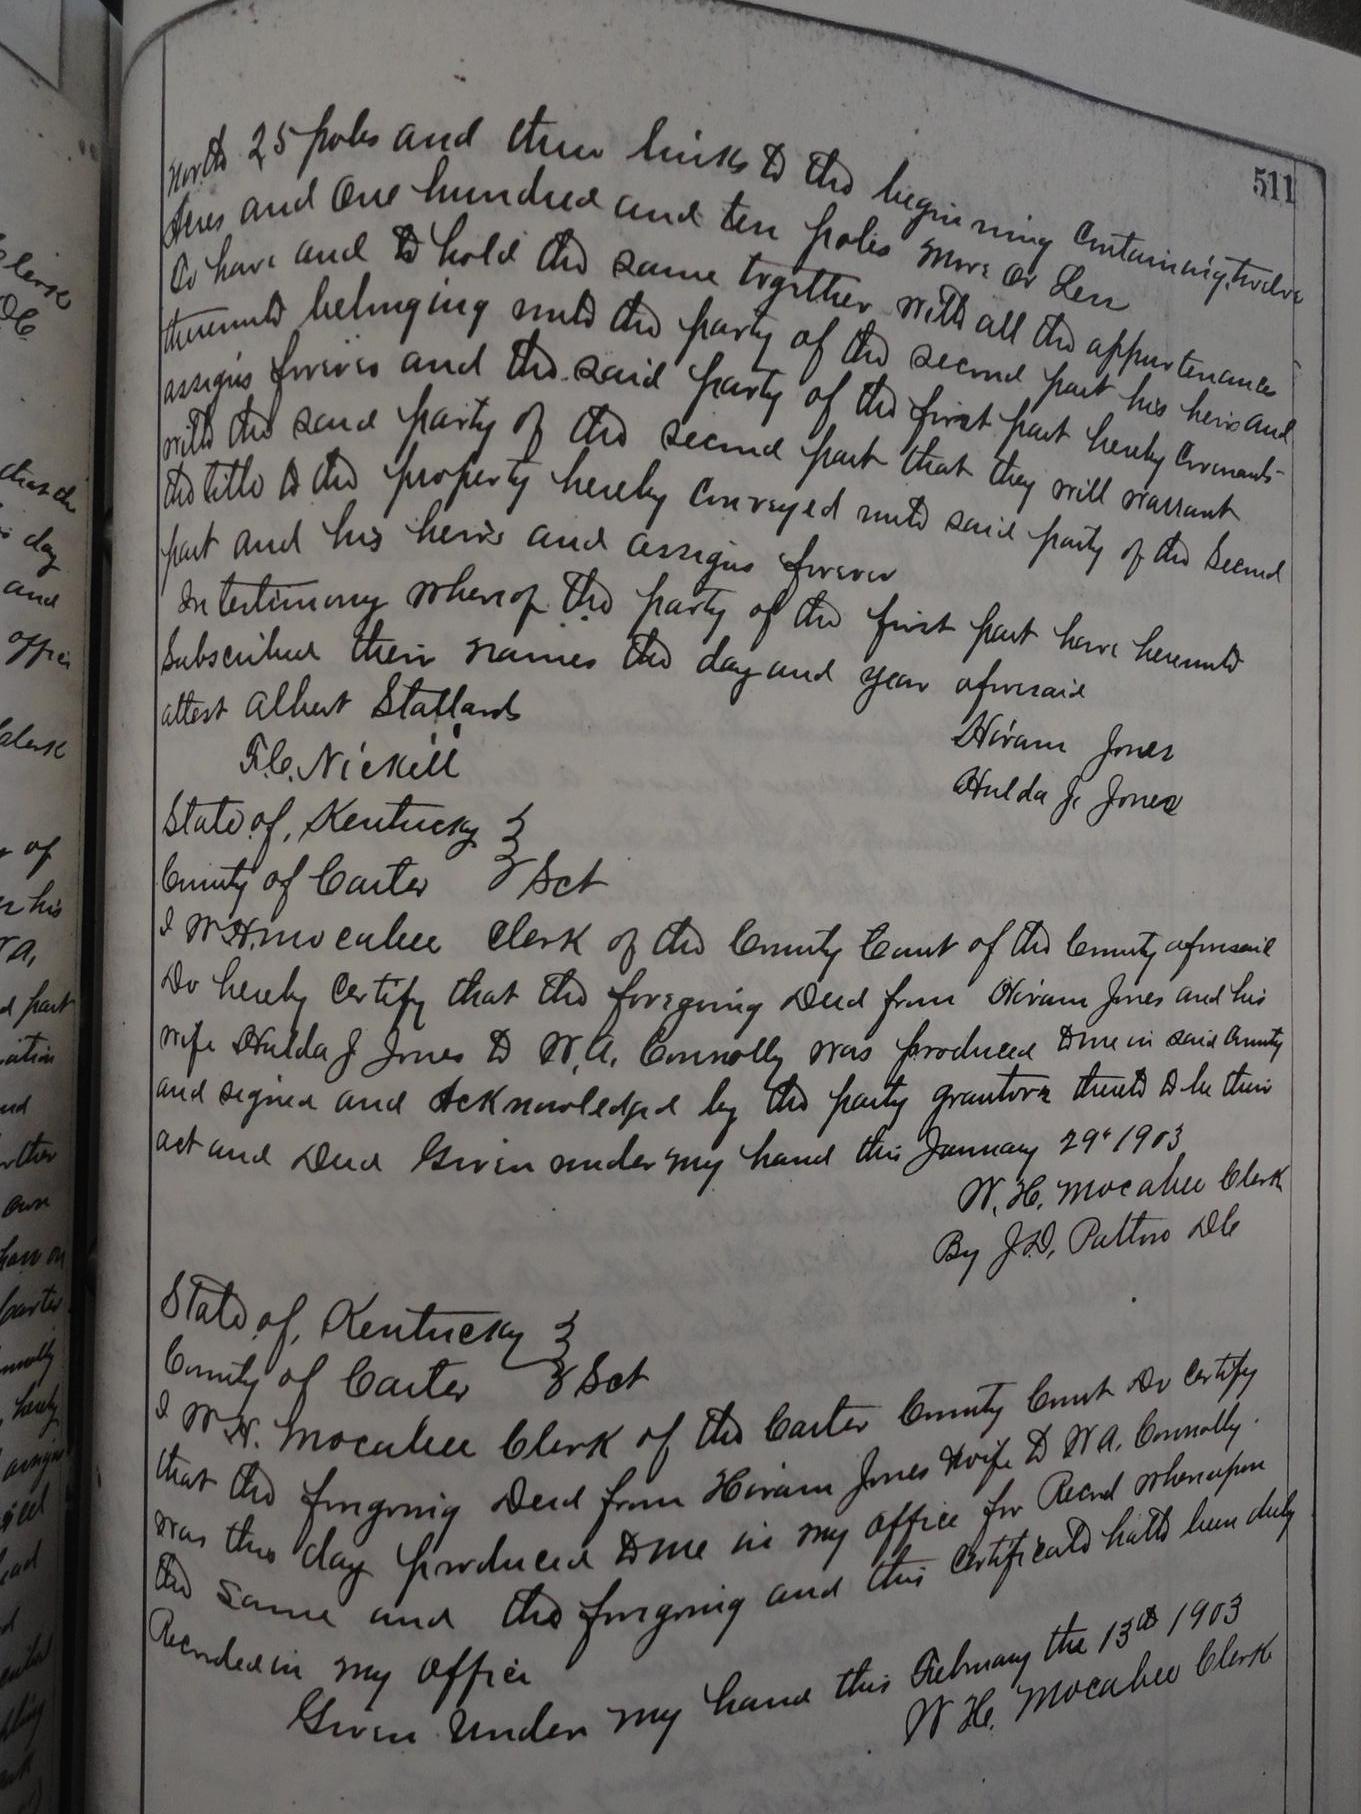 511
North 25 poles and three links to the beginning containing twelve
Acres and One hundred and ten poles more or Less
To have and to hold the same together with all the appurtenances
thereunto belonging unto the party of the second part his heirs and
assigns forever and the said party of the first part hereby Covenants
with the said party of the second part that they will warrant
the title to the property hereby Conveyed unto said party of the Second
part and his heirs and assigns forever
In testimony whereof the party of the first part have hereunto
Subscribed their names the day and year aforesaid
attest Albert Stallard
Hiram Jones
F.C. Nickell
Hulda J. Jones
State of, Kentucky }
County of Carter } Sct
I W.H. Mocabee Clerk of the County Court of the County aforesaid
Do hereby Certify that the foregoing Deed from Hiram Jones and his
wife Hulda J Jones to W.A. Connolly was produced to me in said County
and signed and Acknowledged by the party grantors thereto to be their
act and Deed Given under my hand this January 29" 1903
W. H. Mocabee Clerk
By J.D. Patton DC
State of, Kentucky }
County of Carter } Sct
I W H. Mocabee Clerk of the Carter County Court Do Certify
that the foregoing Deed from Hiram Jones & wife to W A. Connolly
was this day produced to me in my office for Record whereupon
the same and the foregoing and this Certificate hath been duly
Recorded in my office
Given under my hand this February the 13th 1903
W H. Mocabee Clerk
Clerk
DC
day
and
office
Clerk
of
his
part
and
own
Carter
hereby